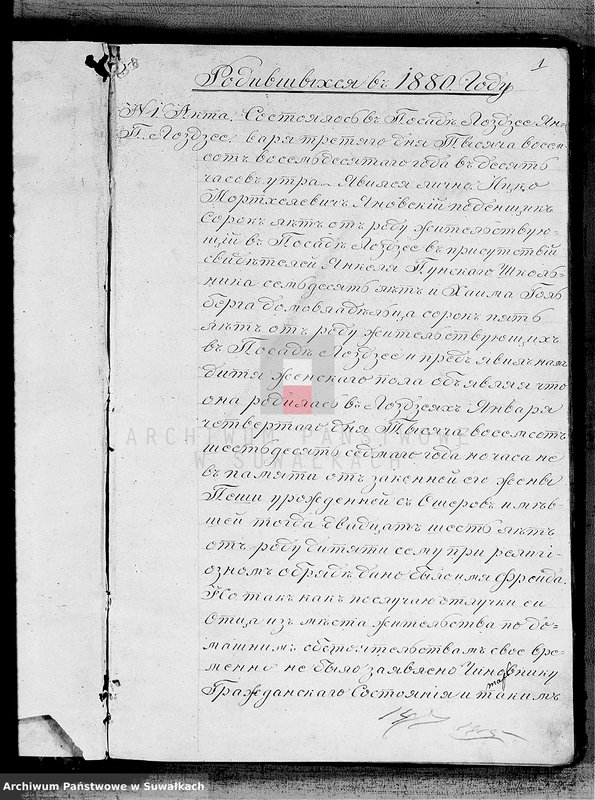 1
Родившыхся въ 1880. Году
N 1. Акта. Состоялось въ Посадѣ Лоздзее Ян-
П. Лоздзее. варя третяго дня Тысяча восем-
сотъ восемьдесятаго года въ десять
часовъ утра. Явился лично
Яновскій поденщикъ
Сорокъ лѣтъ отъ роду жительствую-
щій въ Посадѣ Лоздзее въ присутствіи
свидѣтелей Янкеля Пунскаго Школь-
ника семьдесятъ лѣтъ и Хаима Голь
берга домовладѣльца сорокъ пять
лѣтъ отъ роду жительствующихъ
въ Посадѣ Лоздзее и предъявилъ намъ
дитя женскаго пола объявляя что
она родилась въ Лоздзеяхъ Января
четвертаго дня Тысяча восемсотъ
шестьдесятъ седмаго года но часа не
въ памяти отъ законной его жены
Пеши урожденной съ Ошеровъ имѣв-
шей тогда двадцать шесть лѣтъ
отъ роду дитяти сему при религі-
озномъ обрядѣ дано было имя Фрейда.
Но такъ какъ по случаю отлучки ея
Отца изъ мѣста жительства по до-
машнимъ обстоятельствамъ свое вре-
менно не было заявлено Чиновнику
Гражданскаго Состоянія и такимъ
ARCHIWUM PAŃSTWOWE
W SUWAŁKACH
Archiwum Państwowe w Suwałkach